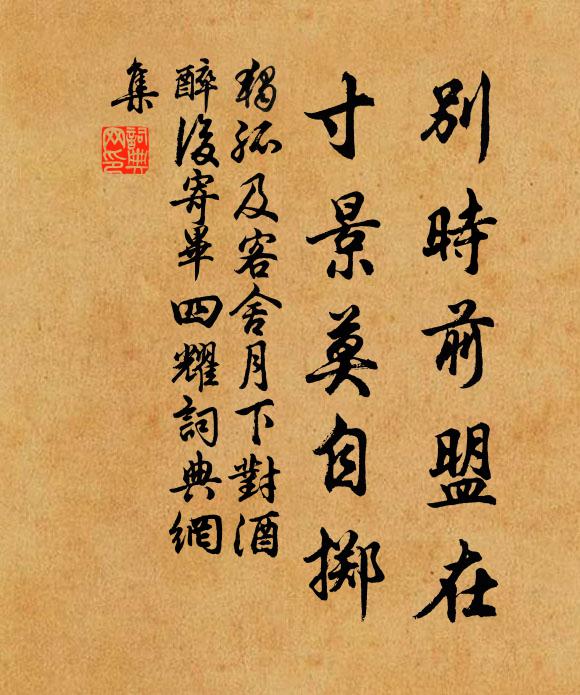 別時前盟在
寸景莫自擲
獨孤及客舍月下對酒
醉後寄畢四耀詞典網
集
詞典网印